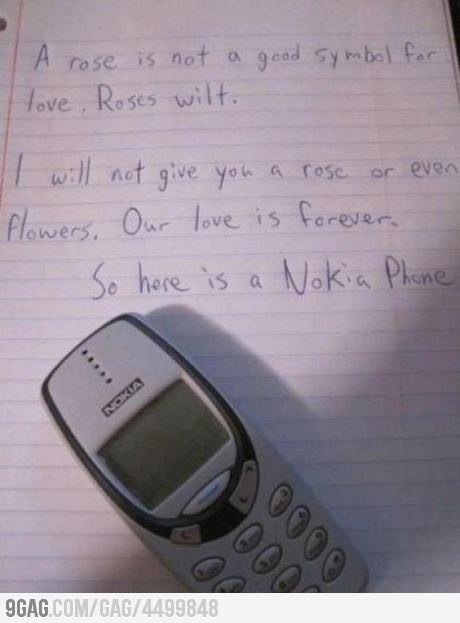 A rose is not a good symbol for
love. Roses wilt.
I will not give you a rose or even
flowers. Our love is forever.
So here is a Nokia Phone
NOKIA
9GAG.COM/GAG/4499848